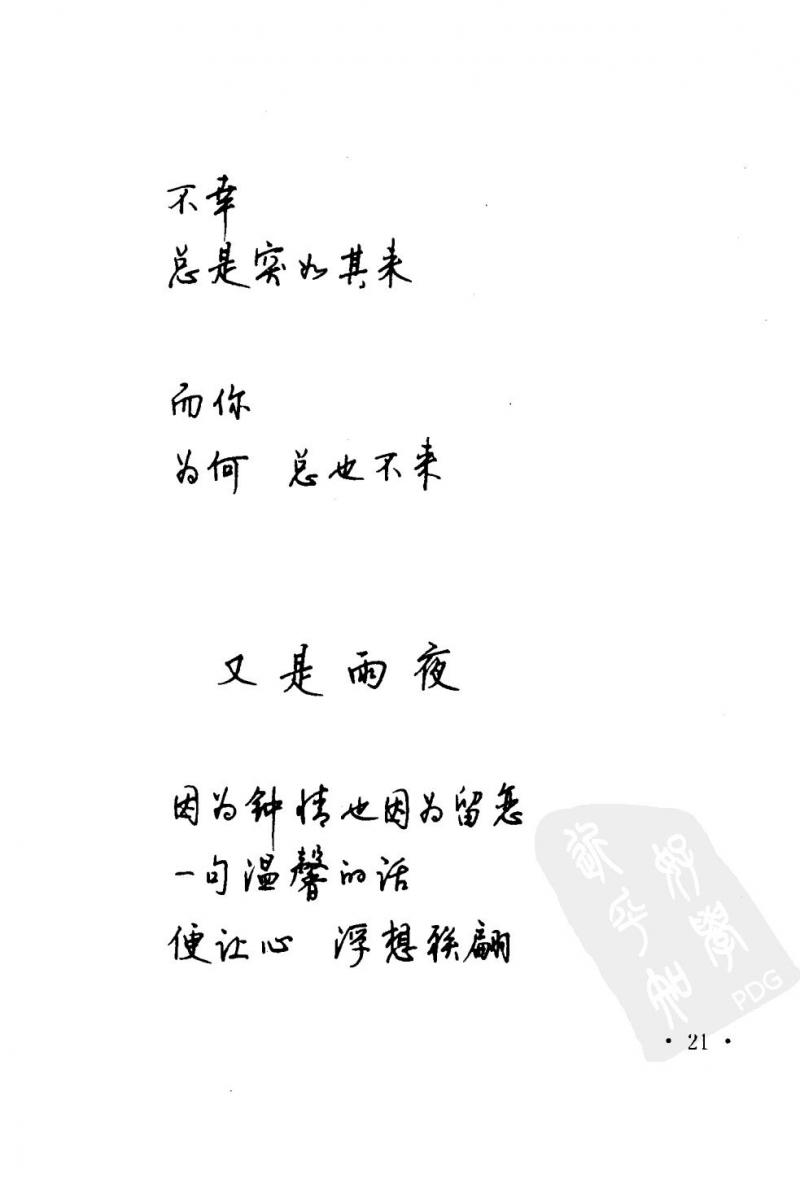 不幸
总是突如其来
而你
为何 总也不来
又是雨夜
因为钟情也因为留恋
一句温馨的话
便让心 浮想联翩
PDG
· 21 ·